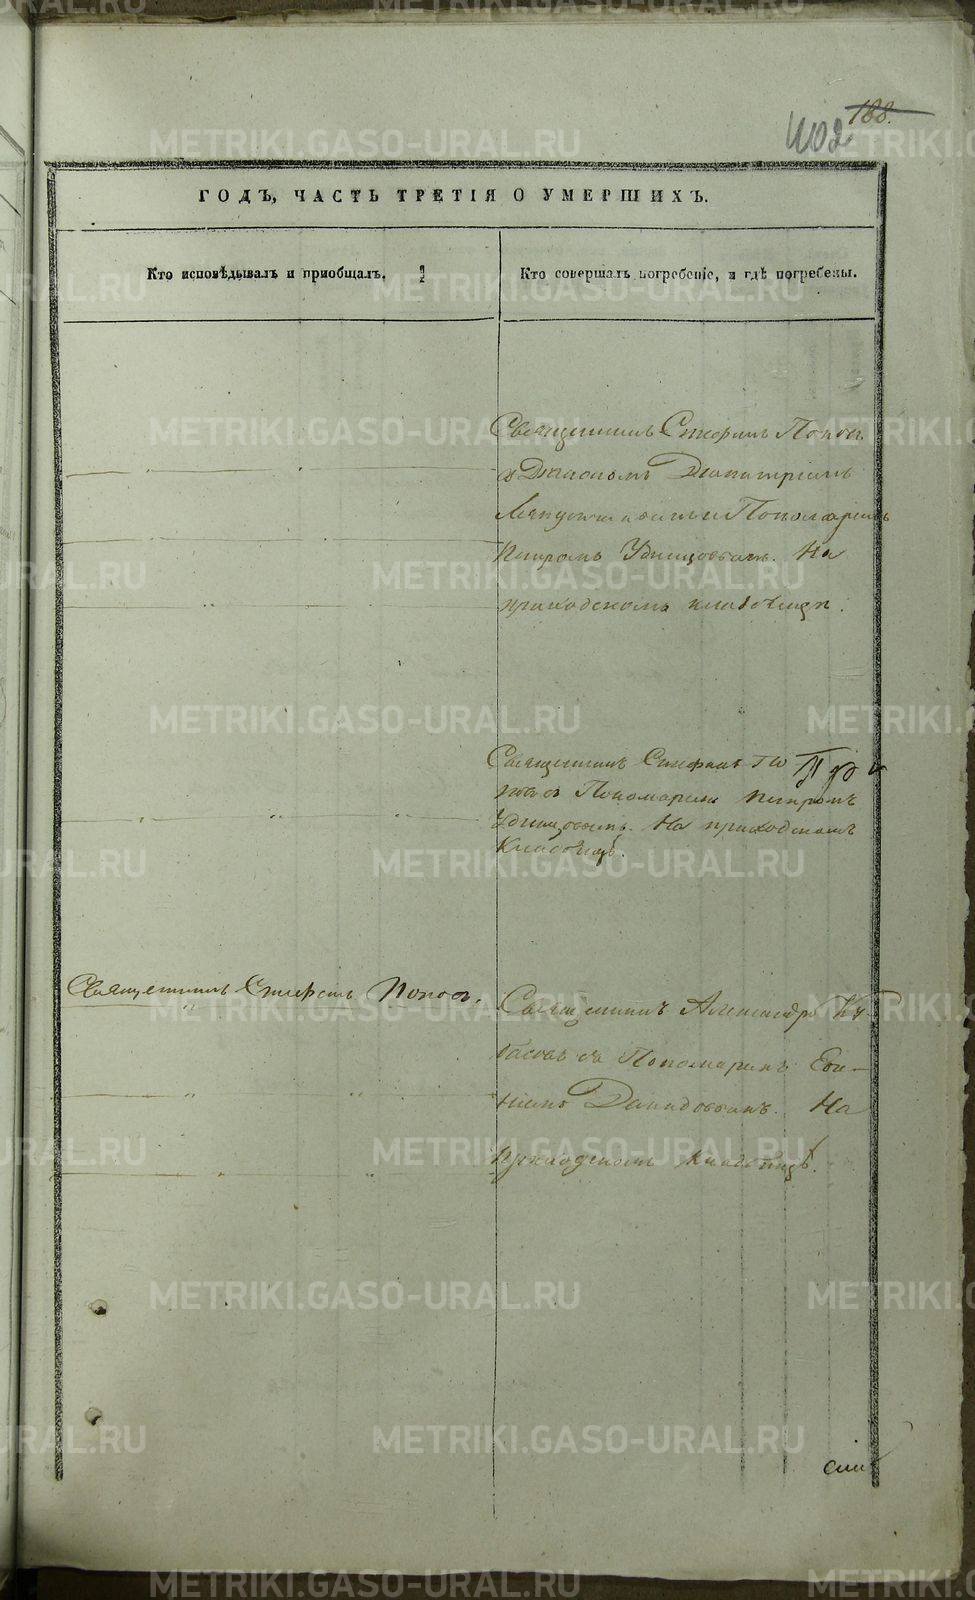 188.
1102
ГОДЪ, ЧАСТЬ ТРЕТІЯ О УМЕРШИХЪ.
Кто исповѣдывалъ и приобщалъ.
Кто совершалъ погребеніе, и гдѣ погребены.
Священникъ Стефанъ Попов
съ Діакономъ Димитріемъ
и Пономаремъ
Петромъ Удинцовымъ. На
приходскомъ кладбищѣ.
Священникъ Стефанъ По
повъ съ Пономаремъ Петромъ
Удинцовымъ. На приходскомъ
Кладбищѣ.
Священникъ Стефанъ Попов.
Священникъ Александръ
съ Пономаремъ Евге-
ніемъ Давидовымъ. На
приходскомъ кладбищѣ.
METRIKI.GASO-URAL.RU